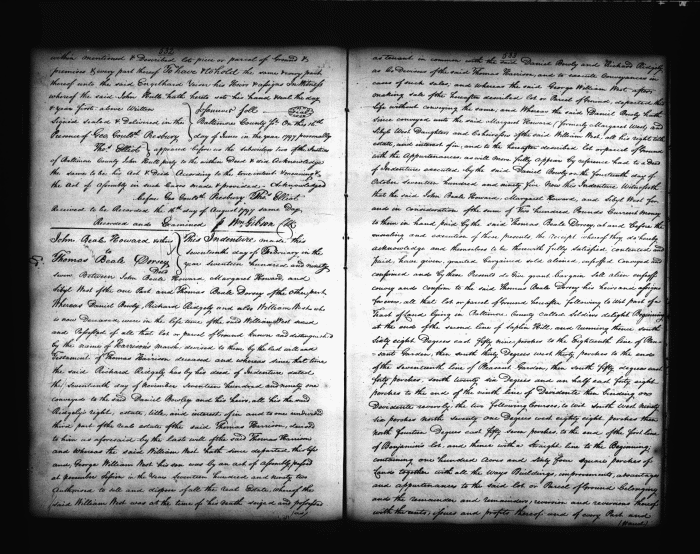 within mentioned & Described lot piece or parcel of Ground &
premises & every part thereof To have & to hold the same & every part
thereof unto the said Engelhard Yeiser his Heirs & assigns In Witness
whereof the said John Hall hath hereto set his hand and the day
& year first above Written
Signed sealed & Delivered in the
Presence of Geo Gouldh Presbury
Thos Elliott
Baltimore County Sct. On this 16th
day of June in the year 1797 personally
appeared before us the subscribers two of the Justices
of Baltimore County John Hall party to the within Deed & did Acknowledge
the same to be his Act & Deed According to the true intent & meaning &
the Act of Assembly in such Cases made & provided. Acknowledged
before Geo Gouldh Presbury Thos Elliott
Received to be Recorded the 16th day of August 1797 same Day
Recorded and Examined Wm Gibson Clk
John Beale Howard
to
Thomas Beale Dorsey
Deed
This Indenture made this
seventeenth day of February in the
year Seventeen hundred and ninety
seven Between John Beale Howard, Margaret Howard and
Sibyl West of the one Part and Thomas Beale Dorsey of the other part,
Whereas Daniel Bowly, Richard Ridgely and also William West who
is now Deceased, were in the life time of the said William West seized
and Possessed of all that lot or Parcel of Ground known and distinguished
by the name of Harrisons Marsh devised to them by the last will and
Testament of Thomas Harrison deceased and whereas since that time
the said Richard Ridgely has by his deed of Indenture dated
the seventeenth day of November Seventeen hundred and ninety one
conveyed to the said Daniel Bowley and his heirs, all his the said
Ridgely's right, estate, title, and interest of in and to one undivided
third part of the real estate of the said Thomas Harrison, devised
to him as aforesaid by the last will of the said Thomas Harrison
and whereas the said William West hath since departed this life
and George William West his son was by an act of assembly passed
at November Session in the Year Seventeen hundred and ninety two
Authorised to sell and dispose of all the real Estate, whereof the
said William West was at the time of his death seized and possessed
as tenant in common with the said Daniel Bowly and Richard Ridgely,
as the Devisees of the said Thomas Harrison, and to execute Conveyances in
cases of such sales. and whereas the said George William West after
making sale of the hereafter described lot or Parcel of Ground, departed this
life without conveying the same; and Whereas the said Daniel Bowly hath
since conveyed unto the said Margaret Howard (formerly Margaret West) and
Sibyl West Daughters and Coheiresses of the said William West, all his right title
estate, and interest of in, and to the hereafter described lot or parcel of Ground
with the Appurtenances, as will more fully appear by reference had to a Deed
of Indenture executed by the said Daniel Bowly on the fourteenth day of
October Seventeen hundred and ninety five Now this Indenture Witnesseth
that the said John Beale Howard, Margaret Howard, and Sibyl West for
and in consideration of the sum of Two hundred Pounds Current money
to them in hand paid by the said Thomas Beale Dorsey, at and Before the
ensealing and execution of these presents, the receipt whereof they do hereby
acknowledge and themselves to be therewith fully satisfied, contented and
Paid, have given, granted bargained sold aliened, enfeoffed conveyed and
confirmed and by these Presents do Give grant bargain sell alien enfeoff
convey and confirm to the said Thomas Beale Dorsey his heirs and assigns
forever, all that lot or parcel of Ground hereafter following to Wit part of a
Tract of Land lying in Baltimore County called Soldiers delight Beginning
at the end of the second line of Saplin Hill, and running thence south
sixty eight Degrees east fifty nine perches to the Eighteenth line of
Garden, then south thirty Degrees west thirty perches to the end
of the seventeenth line of Pleasant Garden, then south fifty degrees east
forty perches, south twenty six Degrees and an half east forty eight
perches to the end of the ninth line of Davidente then binding on
Davidente reversely, the two following courses, to wit South west ninety
six perches north seventy one Degrees west eighty eight perches then
north fourteen Degrees east fifty seven perches, to the end of the first line
of Benjamins lot, and thence with a straight line to the Beginning,
containing one hundred Acres and Sixty four square perches of
Land, together with all the Ways Buildings, improvements, advantages
and appurtenances to the said lot or Parcel of Ground Belonging
and the remainder and remainders, reversion and reversions thereof
with the rents, issues and profits thereof, and of every Part and